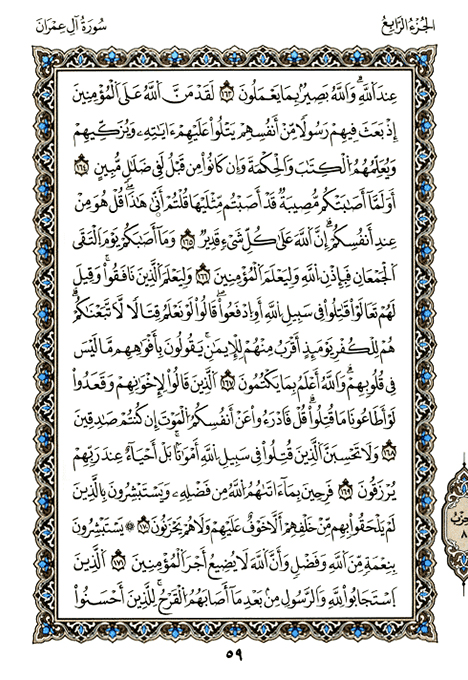 الجزء الرابع
سورة آل عمران
عِندَ ٱللَّهِۗ وَٱللَّهُ بَصِيرُۢ بِمَا يَعْمَلُونَ ١٦٣ لَقَدْ مَنَّ ٱللَّهُ عَلَى ٱلْمُؤْمِنِينَ
إِذْ بَعَثَ فِيهِمْ رَسُولًا مِّنْ أَنفُسِهِمْ يَتْلُوا۟ عَلَيْهِمْ ءَايَٰتِهِۦ وَيُزَكِّيهِمْ
وَيُعَلِّمُهُمُ ٱلْكِتَٰبَ وَٱلْحِكْمَةَ وَإِن كَانُوا۟ مِن قَبْلُ لَفِى ضَلَٰلٍ مُّبِينٍ ١٦٤
أَوَلَمَّآ أَصَٰبَتْكُم مُّصِيبَةٌ قَدْ أَصَبْتُم مِّثْلَيْهَا قُلْتُمْ أَنَّىٰ هَٰذَاۖ قُلْ هُوَ مِنْ
عِندِ أَنفُسِكُمْۗ إِنَّ ٱللَّهَ عَلَىٰ كُلِّ شَىْءٍ قَدِيرٌ ١٦٥ وَمَآ أَصَٰبَكُمْ يَوْمَ ٱلْتَقَى
ٱلْجَمْعَانِ فَبِإِذْنِ ٱللَّهِ وَلِيَعْلَمَ ٱلْمُؤْمِنِينَ ١٦٦ وَلِيَعْلَمَ ٱلَّذِينَ نَافَقُوا۟ۚ وَقِيلَ
لَهُمْ تَعَالَوْا۟ قَٰتِلُوا۟ فِى سَبِيلِ ٱللَّهِ أَوِ ٱدْفَعُوا۟ۖ قَالُوا۟ لَوْ نَعْلَمُ قِتَالًا لَّٱتَّبَعْنَٰكُمْۗ
هُمْ لِلْكُفْرِ يَوْمَئِذٍ أَقْرَبُ مِنْهُمْ لِلْإِيمَٰنِۚ يَقُولُونَ بِأَفْوَٰهِهِم مَّا لَيْسَ
فِى قُلُوبِهِمْۗ وَٱللَّهُ أَعْلَمُ بِمَا يَكْتُمُونَ ١٦٧ ٱلَّذِينَ قَالُوا۟ لِإِخْوَٰنِهِمْ وَقَعَدُوا۟
لَوْ أَطَاعُونَا مَا قُتِلُوا۟ۗ قُلْ فَٱدْرَءُوا۟ عَنْ أَنفُسِكُمُ ٱلْمَوْتَ إِن كُنتُمْ صَٰدِقِينَ
١٦٨ وَلَا تَحْسَبَنَّ ٱلَّذِينَ قُتِلُوا۟ فِى سَبِيلِ ٱللَّهِ أَمْوَٰتًۢاۚ بَلْ أَحْيَآءٌ عِندَ رَبِّهِمْ
يُرْزَقُونَ ١٦٩ فَرِحِينَ بِمَآ ءَاتَىٰهُمُ ٱللَّهُ مِن فَضْلِهِۦ وَيَسْتَبْشِرُونَ بِٱلَّذِينَ
لَمْ يَلْحَقُوا۟ بِهِم مِّنْ خَلْفِهِمْ أَلَّا خَوْفٌ عَلَيْهِمْ وَلَا هُمْ يَحْزَنُونَ ١٧٠ ۞ يَسْتَبْشِرُونَ
بِنِعْمَةٍ مِّنَ ٱللَّهِ وَفَضْلٍ وَأَنَّ ٱللَّهَ لَا يُضِيعُ أَجْرَ ٱلْمُؤْمِنِينَ ١٧١ ٱلَّذِينَ
ٱسْتَجَابُوا۟ لِلَّهِ وَٱلرَّسُولِ مِنۢ بَعْدِ مَآ أَصَابَهُمُ ٱلْقَرْحُۚ لِلَّذِينَ أَحْسَنُوا۟
٥٩